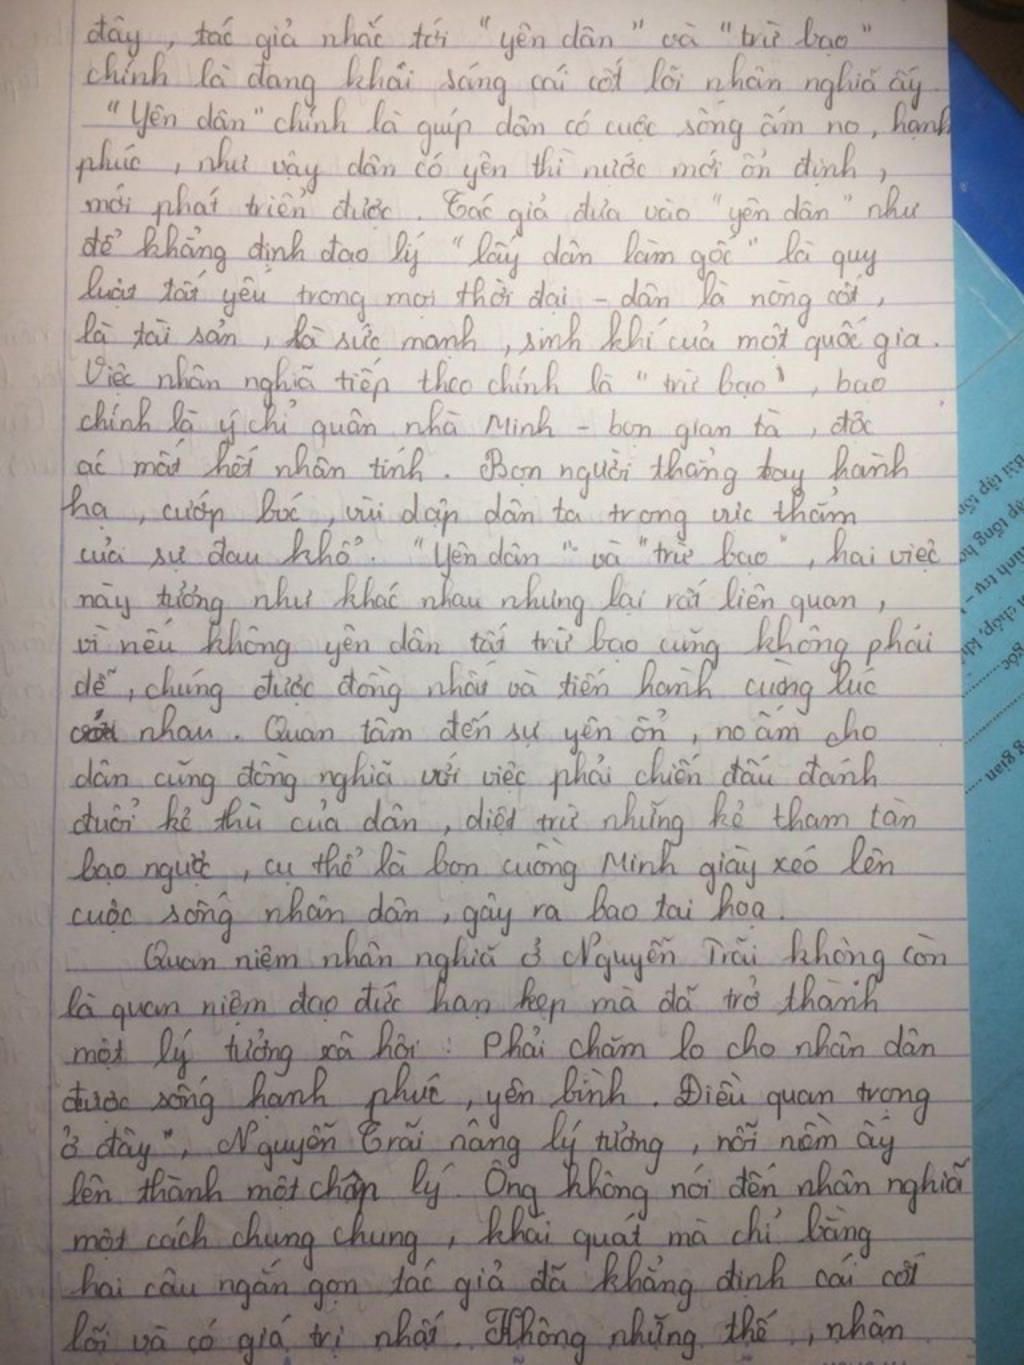 đây, tác giả nhắc tới "yên dân" và "trừ bạo"
chính là đang khái sáng cái cốt lõi nhân nghĩa ấy.
"Yên dân" chính là guíp dân có cuộc sống ấm no, hạnh
phúc, như vậy dân có yên thì nước mới ổn định,
mới phát triển được. Tác giả đưa vào "yên dân" như
để khẳng định đạo lý "lấy dân làm gốc" là quy
luật tất yếu trong mọi thời đại - dân là nòng cốt,
là tài sản, là sức mạnh, sinh khí của một quốc gia.
Việc nhân nghĩa tiếp theo chính là "trừ bạo", bạo
chính là ý chỉ quân nhà Minh - bọn gian tà, độc
ác mất hết nhân tính. Bọn người thẳng tay hành
hạ, cướp bóc, vùi dập dân ta trong vực thẳm
của sự đau khổ. "Yên dân" và "trừ bạo", hai việc
này tưởng như khác nhau nhưng lại rất liên quan,
vì nếu không yên dân tất trừ bạo cũng không phải
dễ, chúng được đồng nhất và tiến hành cường lúc
nhau. Quan tâm đến sự yên ổn, no ấm cho
dân cũng đồng nghĩa với việc phải chiến đấu đánh
đuổi kẻ thù của dân, diệt trừ những kẻ tham tàn
bạo ngược, cụ thể là bọn cuồng Minh giày xéo lên
cuộc sống nhân dân, gây ra bao tai họa.
Quan niệm nhân nghĩa ở Nguyễn Trãi không còn
là quan niệm đạo đức hạn hẹp mà đã trở thành
một lý tưởng xã hội: Phải chăm lo cho nhân dân
được sống hạnh phúc, yên bình. Điều quan trọng
ở đây", Nguyễn Trãi nâng lý tưởng, nỗi nềm ấy
lên thành một chân lý. Ông không nói đến nhân nghĩa
một cách chung chung, khái quát mà chỉ bằng
hai câu ngắn gọn tác giả đã khẳng định cái cốt
lõi và có giá trị nhất. Không những thế, nhân